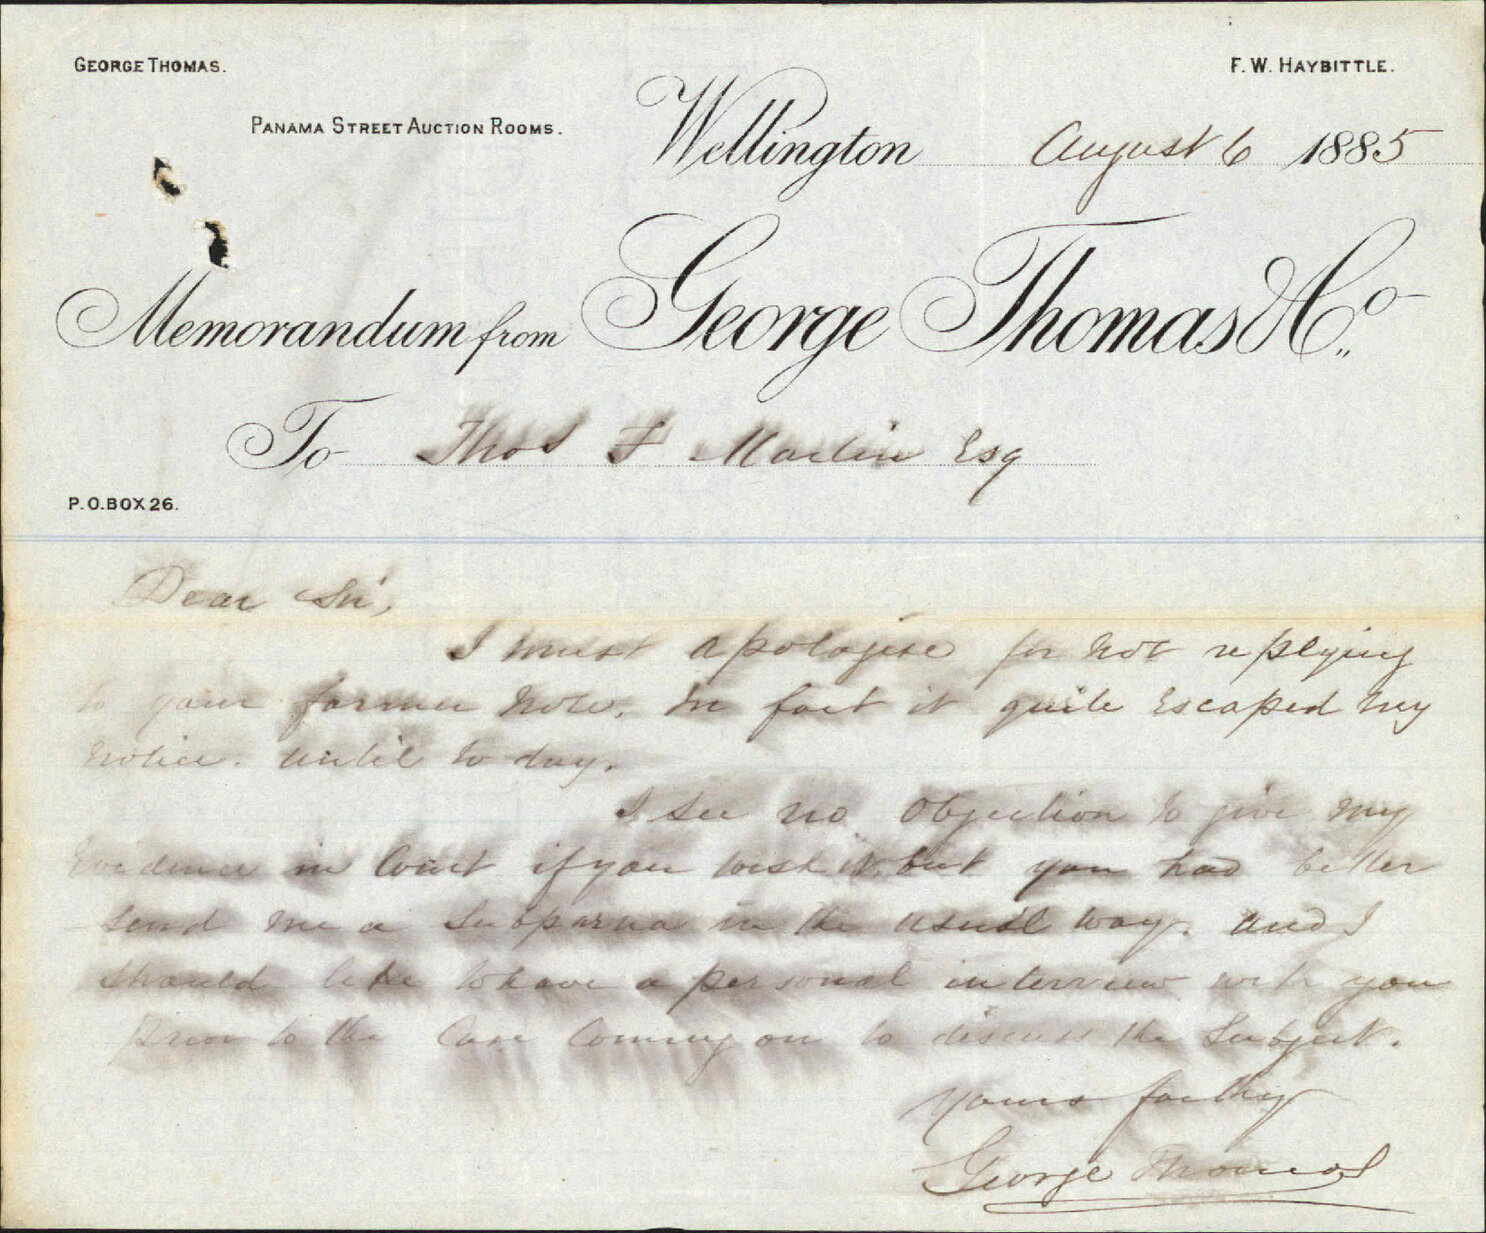 GEORGE THOMAS.
F. W. HAYBITTLE.
PANAMA STREET AUCTION ROOMS.
Wellington August 6 1885
Memorandum from George Thomas & Co.
To Thos F Martin Esq
P.O. BOX 26.
Dear Sir,
I must apologise for not replying
to your former note. In fact it quite escaped my
notice. until to day.
I see no objection to give my
Evidence in Court if you wish it, but you had better
send me a Subpœna in the usual way. and I
should like to have a personal interview with you
Prior to the Case Coming on to discuss the Subject.
Yours faithy
George Thomas